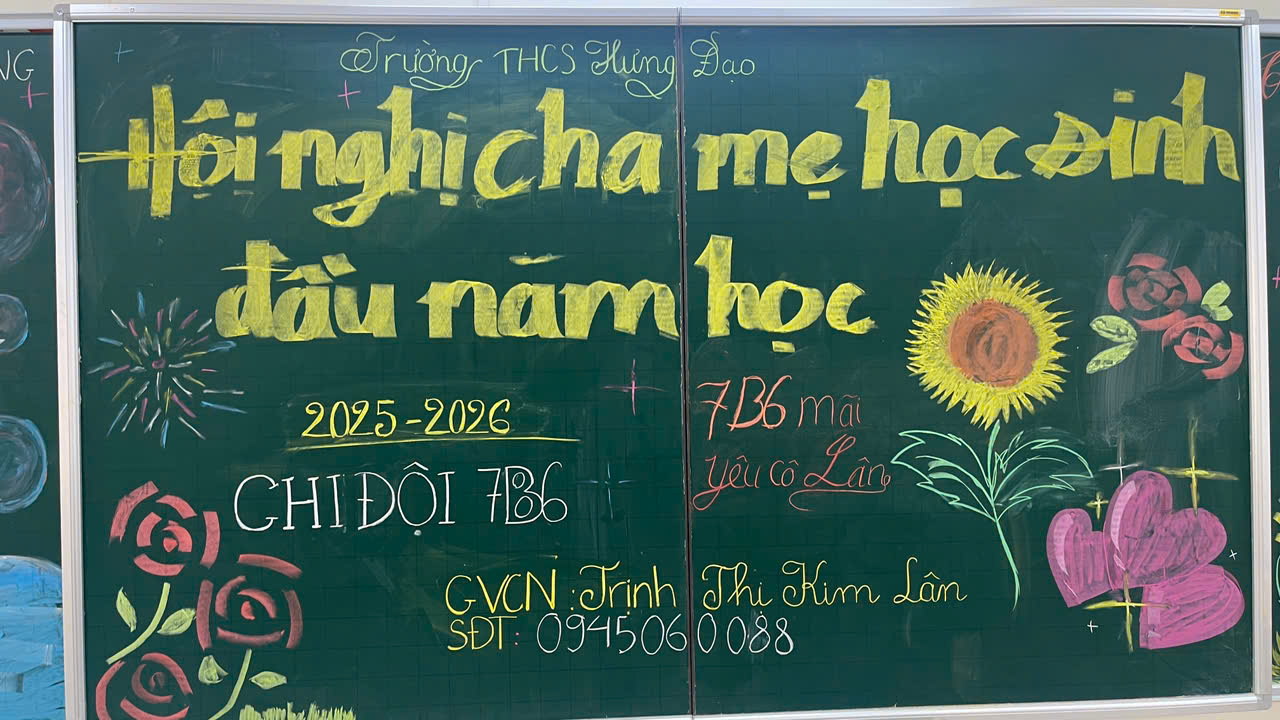 Trường THCS Hưng Đạo
Hội nghị cha mẹ học sinh
đầu năm học
2025-2026
CHI ĐỘI 7B6
7B6 mãi
yêu cô Lân
GVCN: Trịnh Thị Kim Lân
SĐT: 0945060088
NG